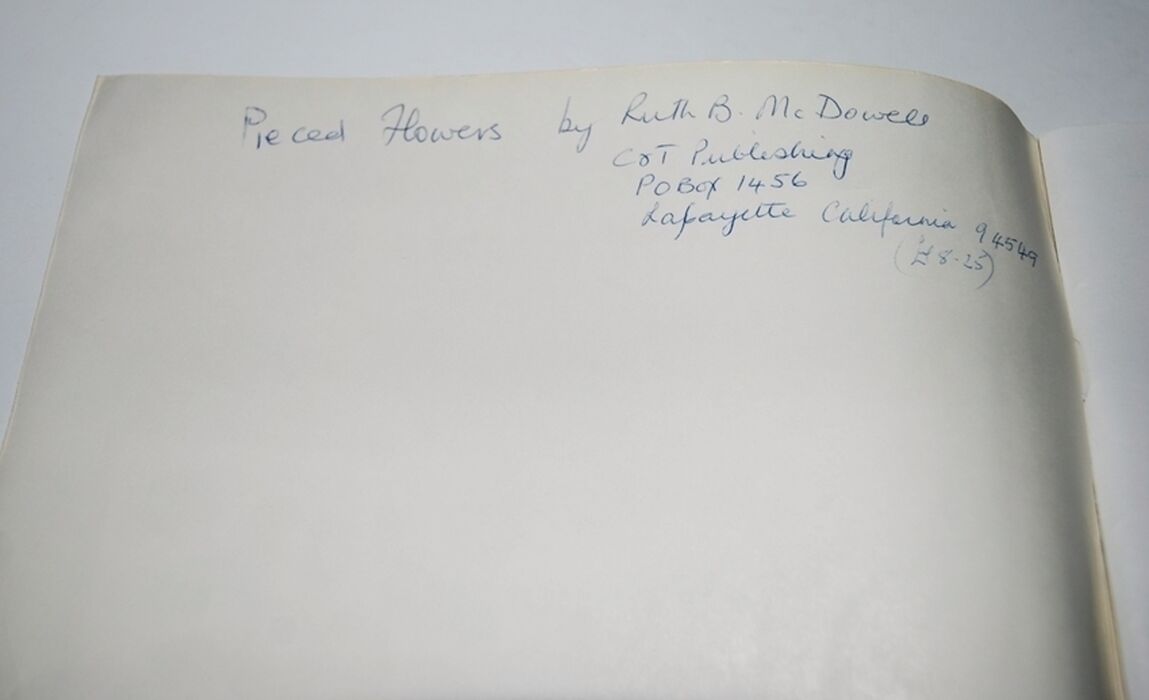 Pieced Flowers by Ruth B. McDowell
C&T Publishing
PO Box 1456
Lafayette California 94549
(£8-25)